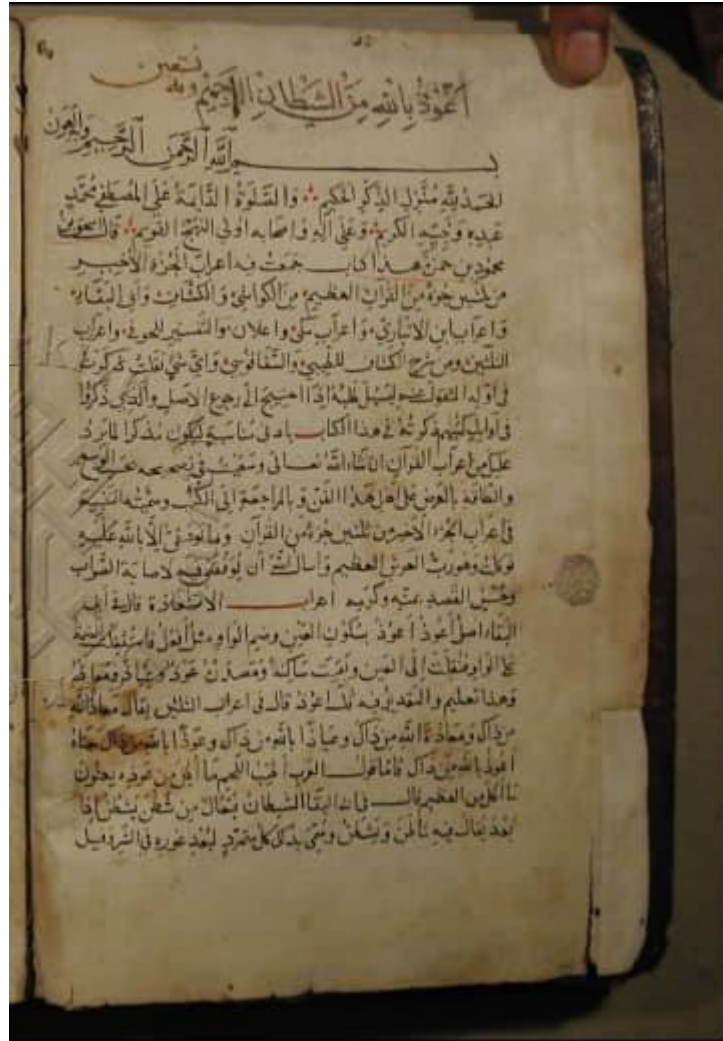 نستعين
وبه
أعوذ بالله من الشيطان الرجيم
بسم الله الرحمن الرحيم والعون
الحمد لله منزل الذكر الحكيم والصلوة الدائمة على المصطفى محمد
عبده ونبيه الكريم وعلى آله واصحابه اولى النهج القويم قال
محمود بن هذا كتاب جمعت فيه اعراب الجزء الأخير
من ثلثين جزء من القرآن العظيم من الكواشي والكشاف وابى البقاء
واعراب ابن الانباري واعراب مكي والتفسير للحوفي واعراب
الثلثين ومن شرح الكشاف للطيبي والسفاقوسي واى شى نقلت
فى أوله المنقول ليسهل طلبه إذا احتيج الى رجوع الاصل والذى ذكروا
فى أوايل كتبهم ذكرته فى هذا الكتاب بادنى مناسبة ليكون مذكرا لما يرد
عليه من اعراب القرآن ان شاء الله تعالى وسعيت فى تصحيحه بحسب الوسع
والطاقه بالعرض على اهل هذا الفن وبالمراجعة الى الكتب وسميته
فى اعراب الجزء الاخير من ثلثين جزء من القرآن وما توفيقى الا بالله عليه
توكلت وهو رب العرش العظيم وأسال الله أن يوفقنى فيه لاصابة الصواب
وحسن القصد بمنه وكرمه اعراب الاستعاذة قال فيه ابو
البقاء اصل أعوذ أعوذ بسكون العين وضم الواو مثل أقتل فاستثقلت الضمة
على الواو فنقلت إلى العين وبقيت ساكنة ومصدره عوذ وعياذ ومعاذ
وهذا تعليم والتقدير فيه قل اعوذ قال فى اعراب الثلثين يقال معاذ الله
من ذاك ومعاذة الله من ذاك وعياذا بالله من ذاك وعوذا بالله من ذاك معناه
أعوذ بالله من ذاك فاما قول العرب أطيب اللحم عوذه يعنون
ما من العظم قال فى ابى البقا الشيطان فيعال من شطن يشطن إذا
بعد يقال فيه شاطن وتشيطن وسمى بذلك كل متمرد لبعد غوره فى الشر وقيل